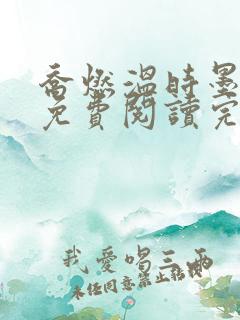 喬燃溫時墨
免費閱讀完
我愛喝三兩
未任同意禁止轉載